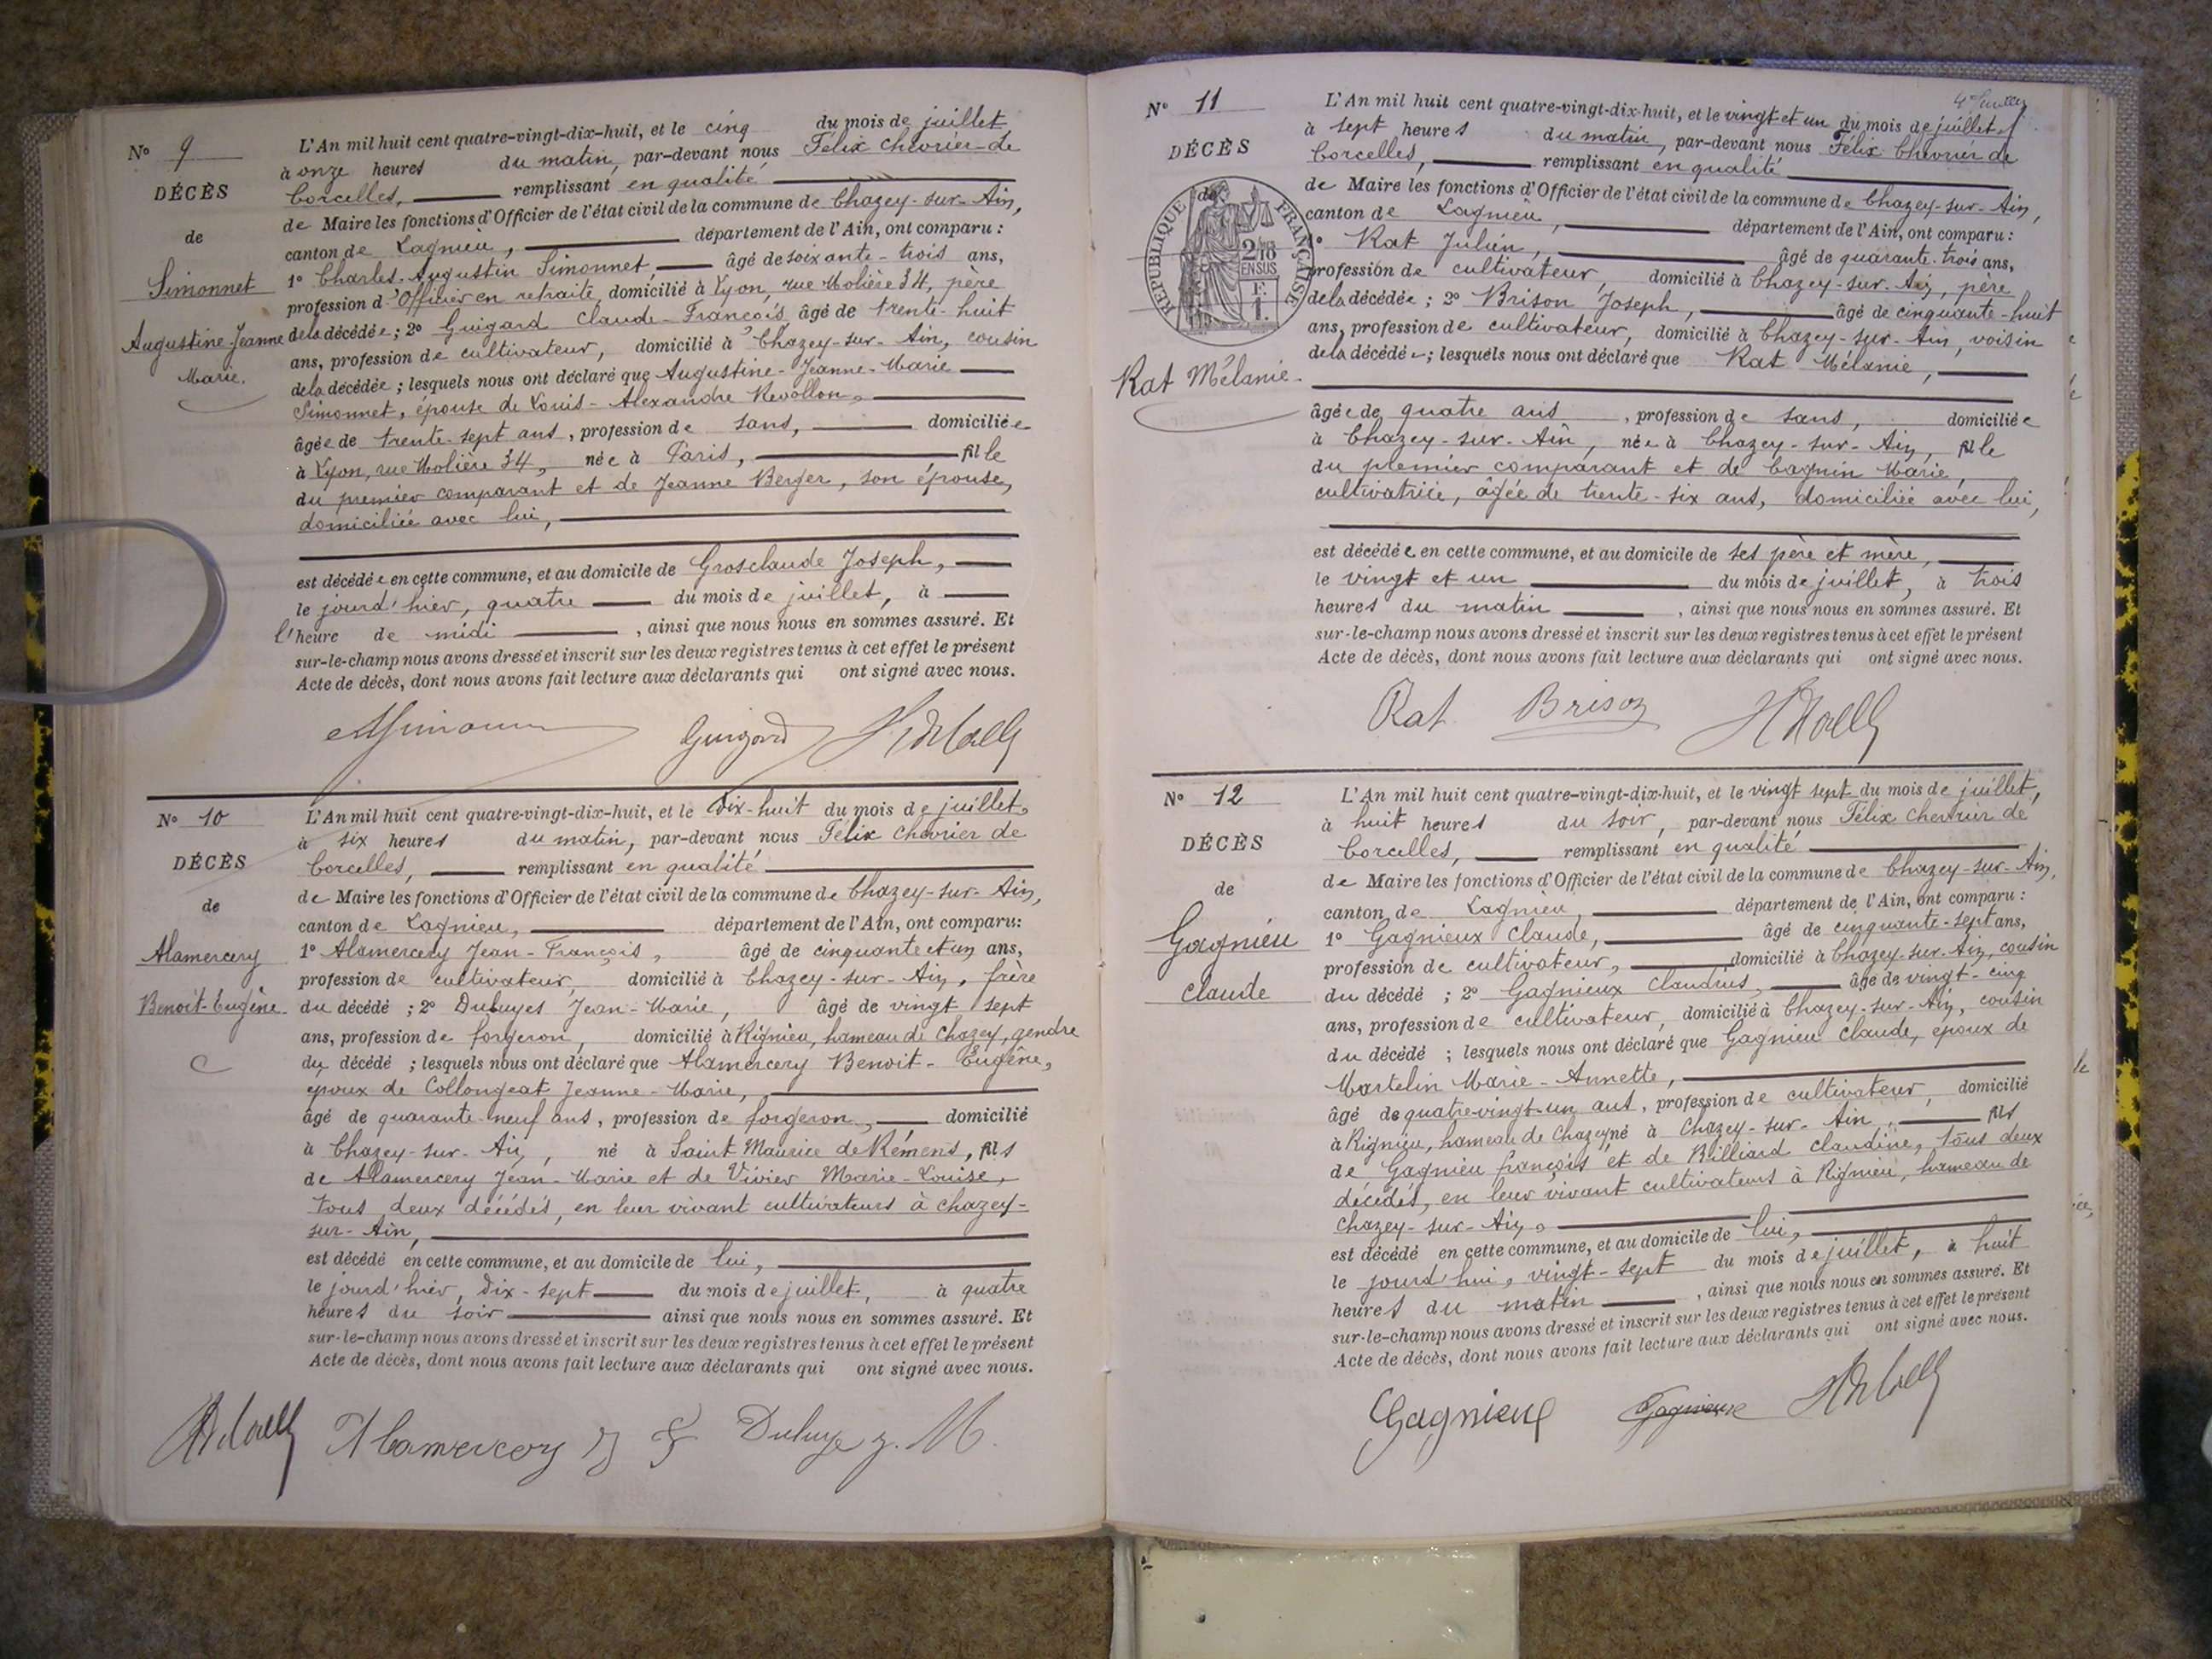 N° 9
DÉCÈS
de
Simonnet
Augustine-Jeanne
Marie.
L'An mil huit cent quatre-vingt-dix-huit, et le cinq du mois de juillet
à onze heures du matin, par-devant nous Félix Chevrier de
Corcelles, remplissant en qualité
de Maire les fonctions d'Officier de l'état civil de la commune de Chazey-sur-Ain,
canton de Lagnieu, département de l'Ain, ont comparu :
1° Charles-Augustin Simonnet, âgé de soixante-trois ans,
profession d'Officier en retraite, domicilié à Lyon, rue Molière 34, père
de la décédée ; 2° Guigard Claude-François âgé de trente-huit
ans, profession de cultivateur, domicilié à Chazey-sur-Ain, cousin
de la décédée ; lesquels nous ont déclaré que Augustine-Jeanne-Marie
Simonnet, épouse de Louis-Alexandre Revollon,
âgée de trente-sept ans, profession de sans, domiciliée
à Lyon, rue Molière 34, née à Paris, fille
du premier comparant et de Jeanne Berger, son épouse,
domiciliée avec lui,
est décédée en cette commune, et au domicile de Grosclaude Joseph,
le jourd'hier, quatre du mois de juillet, à
l'heure de midi, ainsi que nous nous en sommes assuré. Et
sur-le-champ nous avons dressé et inscrit sur les deux registres tenus à cet effet le présent
Acte de décès, dont nous avons fait lecture aux déclarants qui ont signé avec nous.
Guigard
N° 10
DÉCÈS
de
Alamercery
Benoit-Eugène
L'An mil huit cent quatre-vingt-dix-huit, et le dix-huit du mois de juillet,
à six heures du matin, par-devant nous Félix Chevrier de
Corcelles, remplissant en qualité
de Maire les fonctions d'Officier de l'état civil de la commune de Chazey-sur-Ain,
canton de Lagnieu, département de l'Ain, ont comparu:
1° Alamercery Jean-François, âgé de cinquante et un ans,
profession de cultivateur, domicilié à Chazey-sur-Ain, frère
du décédé ; 2° Dubuyes Jean-Marie, âgé de vingt sept
ans, profession de forgeron, domicilié à Rignieu, hameau de Chazey, gendre
du décédé ; lesquels nous ont déclaré que Alamercery Benoit-Eugène,
époux de Collongeat Jeanne-Marie,
âgé de quarante-neuf ans, profession de forgeron, domicilié
à Chazey-sur-Ain, né à Saint Maurice de Rémens, fils
de Alamercery Jean-Marie et de Vivier Marie-Louise,
tous deux décédés, en leur vivant cultivateurs à Chazey-
sur-Ain,
est décédé en cette commune, et au domicile de lui,
le jourd'hier, dix-sept du mois de juillet, à quatre
heures du soir ainsi que nous nous en sommes assuré. Et
sur-le-champ nous avons dressé et inscrit sur les deux registres tenus à cet effet le présent
Acte de décès, dont nous avons fait lecture aux déclarants qui ont signé avec nous.
Alamercery
N° 11
DÉCÈS
de
RÉPUBLIQUE FRANÇAISE
2/10
EN SUS
F.
1.
Rat Mélanie
L'An mil huit cent quatre-vingt-dix-huit, et le vingt et un du mois de juillet
à sept heures du matin, par-devant nous Félix Chevrier de
Corcelles, remplissant en qualité
de Maire les fonctions d'Officier de l'état civil de la commune de Chazey-sur-Ain,
canton de Lagnieu, département de l'Ain, ont comparu :
1° Rat Julien, âgé de quarante-trois ans,
profession de cultivateur, domicilié à Chazey-sur-Ain, père
de la décédée ; 2° Brison Joseph, âgé de cinquante-huit
ans, profession de cultivateur, domicilié à Chazey-sur-Ain, voisin
de la décédée ; lesquels nous ont déclaré que Rat Mélanie,
âgée de quatre ans, profession de sans, domiciliée
à Chazey-sur-Ain, née à Chazey-sur-Ain, fille
du premier comparant et de Cagnin Marie,
cultivatrice, âgée de trente-six ans, domiciliée avec lui,
est décédée en cette commune, et au domicile de ses père et mère,
le vingt et un du mois de juillet, à trois
heures du matin, ainsi que nous nous en sommes assuré. Et
sur-le-champ nous avons dressé et inscrit sur les deux registres tenus à cet effet le présent
Acte de décès, dont nous avons fait lecture aux déclarants qui ont signé avec nous.
Rat Brison
N° 12
DÉCÈS
de
Gagnieu
Claude
L'An mil huit cent quatre-vingt-dix-huit, et le vingt sept du mois de juillet,
à huit heures du soir, par-devant nous Félix Chevrier de
Corcelles, remplissant en qualité
de Maire les fonctions d'Officier de l'état civil de la commune de Chazey-sur-Ain,
canton de Lagnieu, département de l'Ain, ont comparu :
1° Gagnieux Claude, âgé de cinquante-sept ans,
profession de cultivateur, domicilié à Chazey-sur-Ain, cousin
du décédé ; 2° Gagnieux Claudius, âgé de vingt-cinq
ans, profession de cultivateur, domicilié à Chazey-sur-Ain, cousin
du décédé ; lesquels nous ont déclaré que Gagnieu Claude, époux de
Martelin Marie-Annette,
âgé de quatre-vingt-un ans, profession de cultivateur, domicilié
à Rignieu, hameau de Chazey né à Chazey-sur-Ain, fils
de Gagnieu françois et de Billiard Claudine, tous deux
décédés, en leur vivant cultivateurs à Rignieu, hameau de
Chazey-sur-Ain,
est décédé en cette commune, et au domicile de lui,
le jourd'hui, vingt-sept du mois de juillet, à huit
heures du matin, ainsi que nous nous en sommes assuré. Et
sur-le-champ nous avons dressé et inscrit sur les deux registres tenus à cet effet le présent
Acte de décès, dont nous avons fait lecture aux déclarants qui ont signé avec nous.
Gagnieux